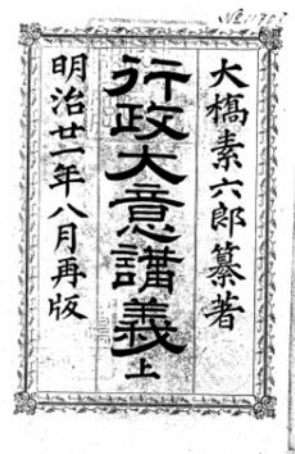 大橋素六郎纂著
行政大意講義上
明治廿一年八月再版